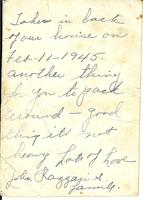 Taken in back
of our house on
Feb-11-1945.
another thing
for you to pack
around - good
thing its not
heavy. Lots of Love
John
family.